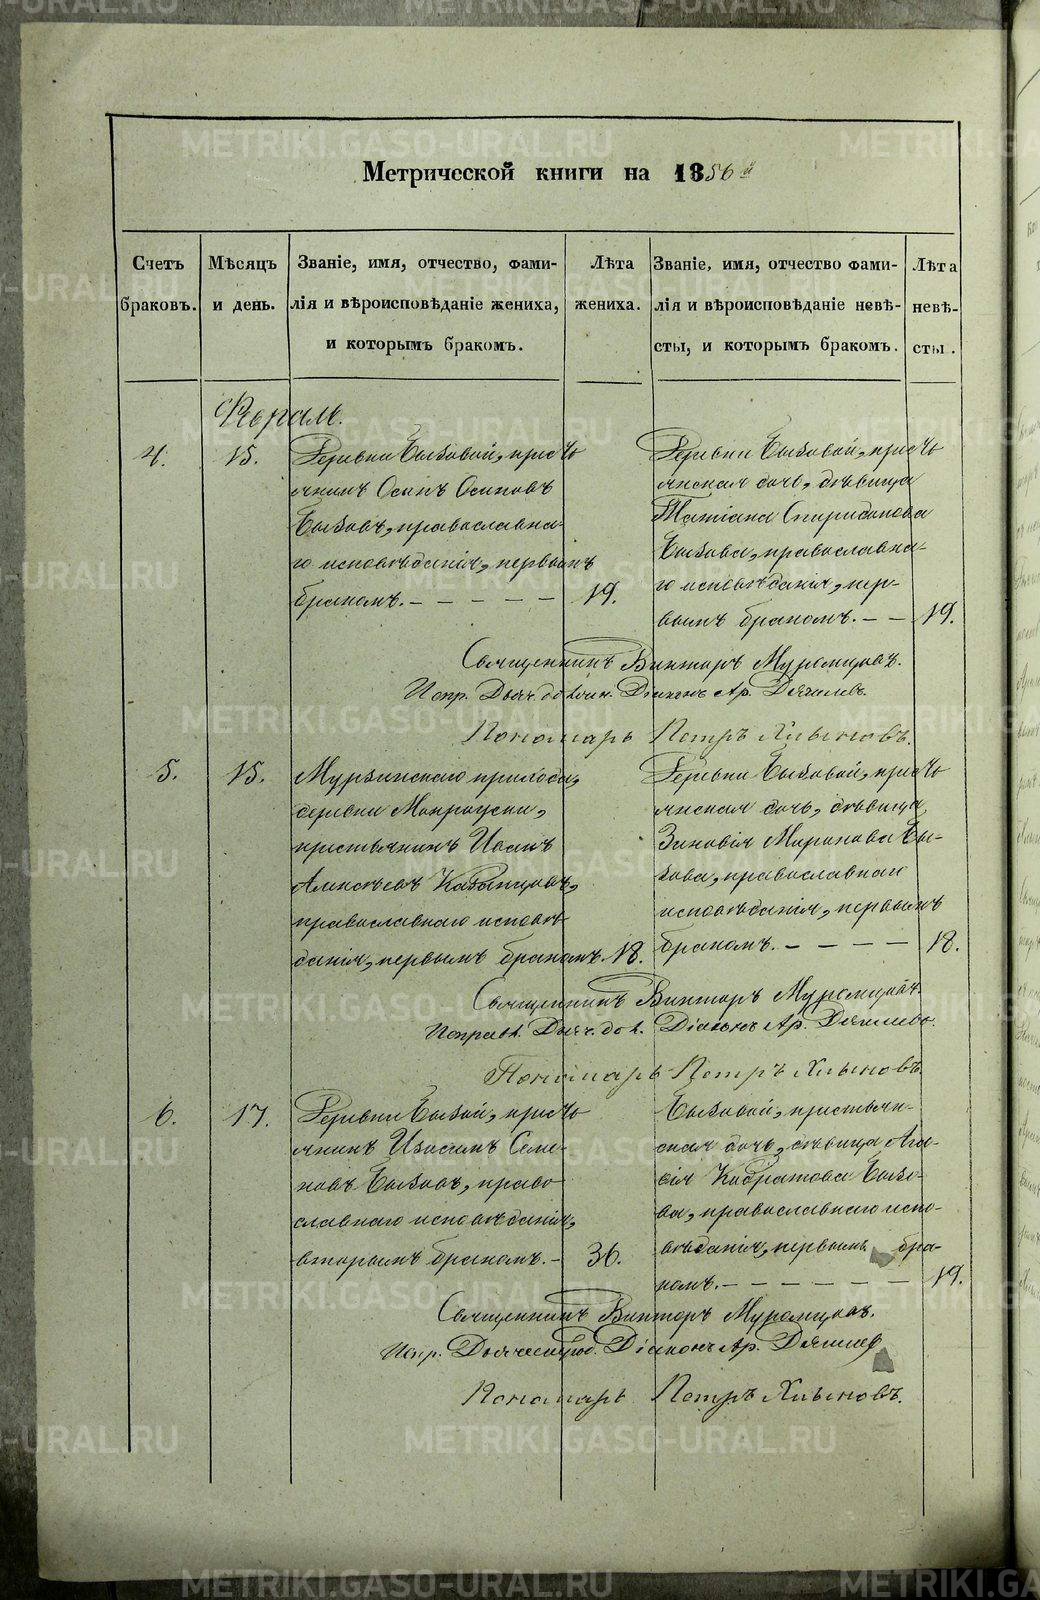 Метрической книги на 1856й
Счетъ браковъ.
Мѣсяцъ и день.
Званіе, имя, отчество, фами-
лія и вѣроисповѣданіе жениха,
и которымъ бракомъ.
Лѣта жениха.
Званіе, имя, отчество фами-
лія и вѣроисповѣданіе невѣ-
сты, и которымъ бракомъ.
Лѣта невѣ-
сты.
Февраль.
4.
15.
Деревни Быковой, кресть
янинъ Осипъ Осиповъ
Быковъ, православна-
го исповѣданія, первымъ
бракомъ. – – – – – 19.
Деревни Быковой, кресть
янская дочь, дѣвица
Татіана Спиридонова
Быкова, православна-
го исповѣданія, пер-
вымъ бракомъ. – – 19.
Священникъ Викторъ Муромцовъ.
Испр. Дьяч. долж. Діаконъ Ар.
Пономарь Петръ Хлыновъ.
5.
15.
Мурзинскаго прихода,
деревни
крестьянинъ Иванъ
Алексѣевъ
православнаго исповѣ
данія, первымъ бракомъ. 18.
Деревни Быковой, кресть
янская дочь, дѣвица
Зиновія Миронова Бы-
кова, православнаго
исповѣданія, первымъ
бракомъ. – – – – 18.
Священникъ Викторъ Муромцовъ.
Діаконъ Ар.
Пономарь Петръ Хлыновъ.
6.
17.
Деревни кресть
янинъ Изосимъ Семе-
новъ Быковъ, право
славнаго исповѣданія,
вторымъ бракомъ. – 36.
Быковой, крестьян-
ская дочь, дѣвица Ага-
фія Кодратова Быко-
ва, православнаго испо-
вѣданія, первымъ бра-
комъ. – – – – – – 19.
Священникъ Викторъ Муромцовъ.
Испр. Діаконъ Ар.
Пономарь Петръ Хлыновъ.
METRIKI.GASO-URAL.RU